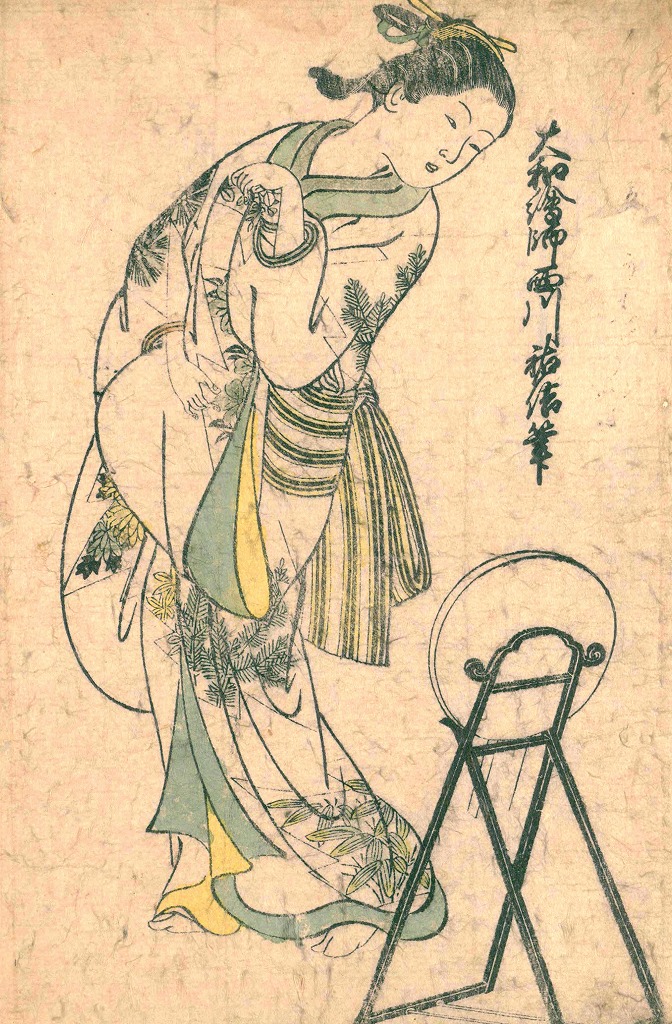 大和繪師西川祐信筆